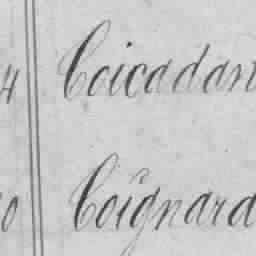 4 Coicadan
0 Coignard